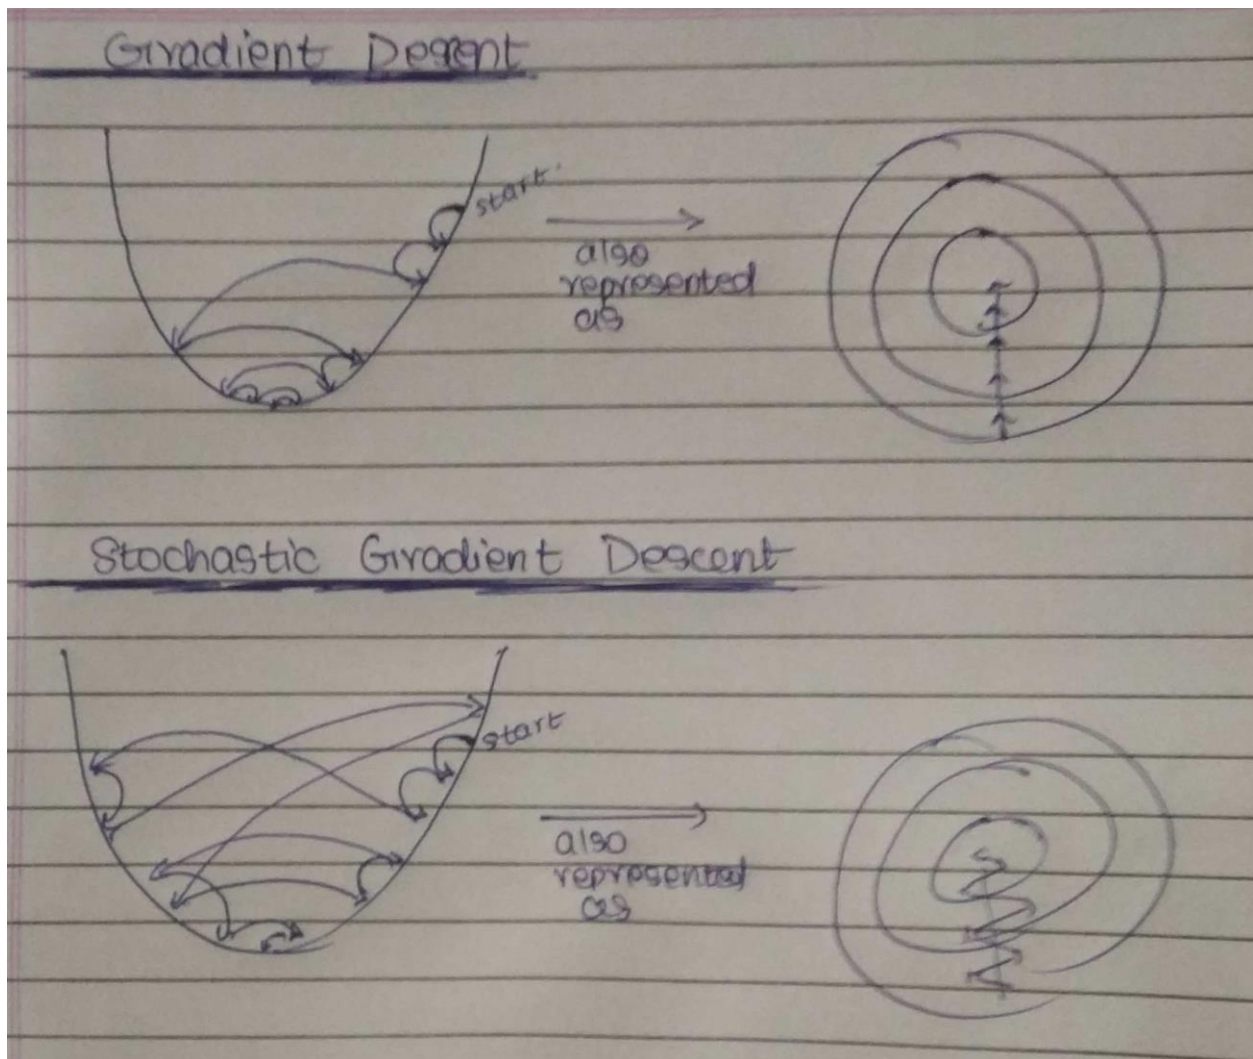 Gradient Descent
start
also
represented
as
Stochastic Gradient Descent
start
also
represented
as